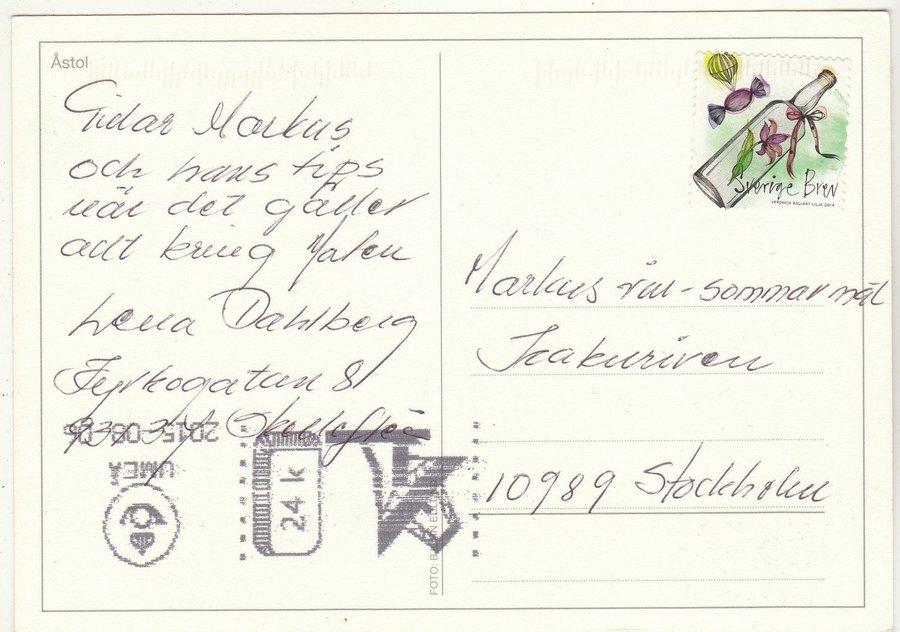 Åstol
Gidar Markus
och hans tips
när det gäller
allt kring Malen
Lena Dahlberg
Fyrkogatan 8
93 34 Skellefteå
2015-08-06
UMEÅ
24 K
FOTO:
Sverige Brev
VERONICA BALLART LILJA 2014
Markus vin-sommarmål
10989 Stockholm